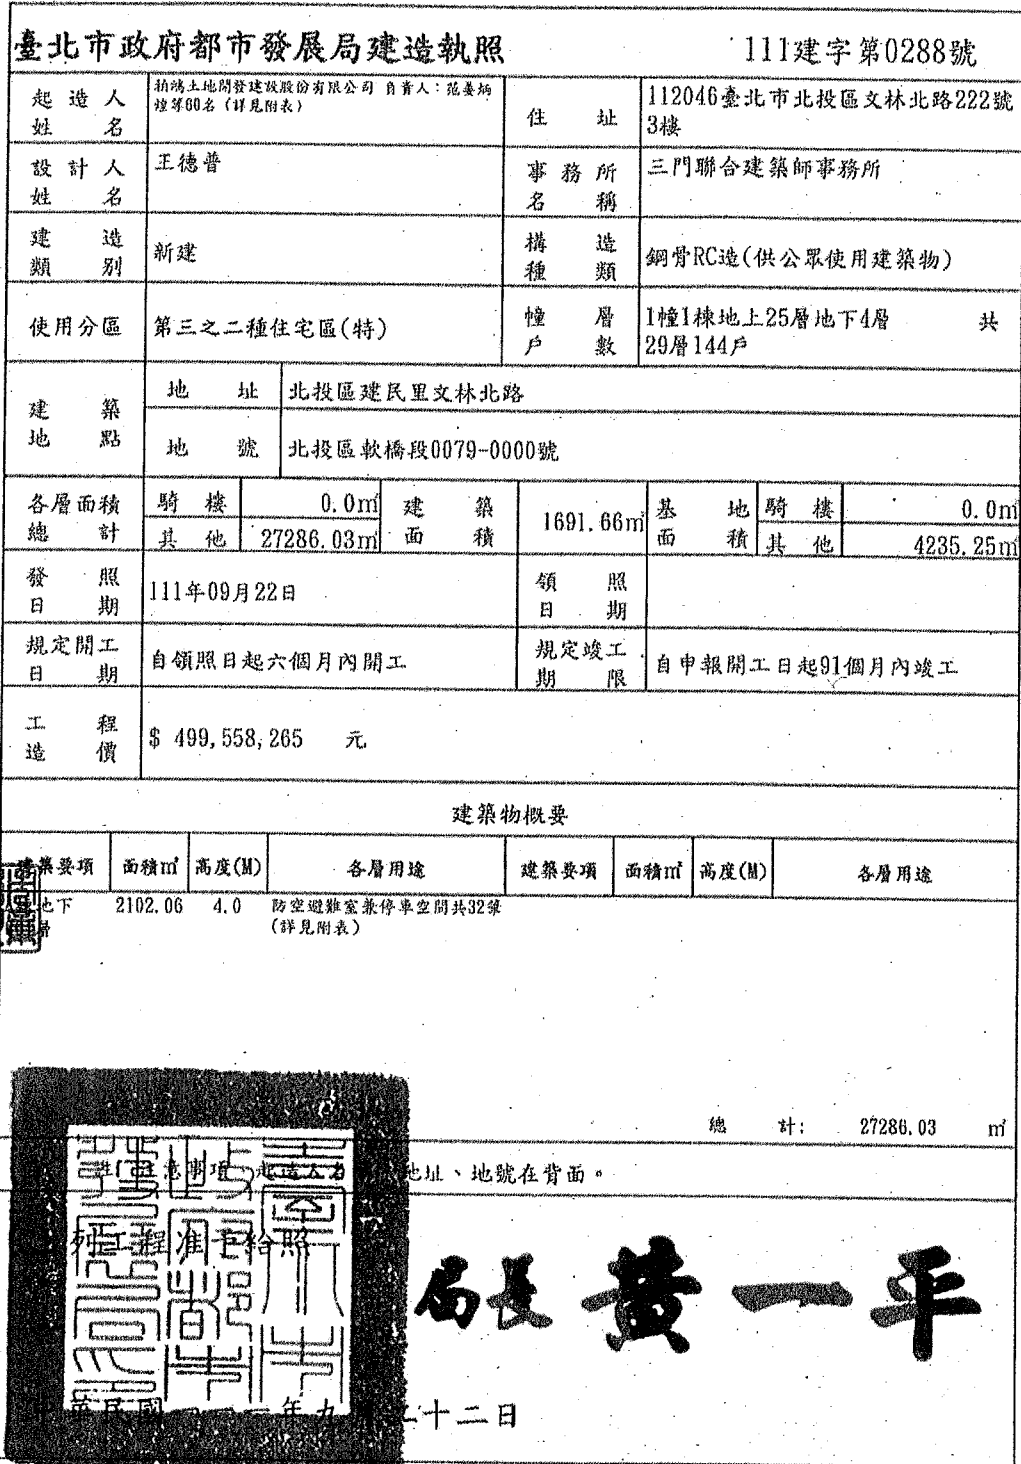 臺北市政府都市發展局建造執照
111建字第0288號
起造人
姓名
土地開發建設股份有限公司 負責人：范姜炳
煌等60名（詳見附表）
住址
112046臺北市北投區文林北路222號
3樓
設計人
姓名
王德普
事務所
名稱
三門聯合建築師事務所
建造
類別
新建
構造
種類
鋼骨RC造(供公眾使用建築物)
使用分區
第三之二種住宅區(特)
幢層
戶數
1幢1棟地上25層地下4層 共
29層144戶
建築
地點
地址
北投區建民里文林北路
地號
北投區軟橋段0079-0000號
各層面積
總計
騎樓
0.0㎡
其他
27286.03㎡
建築
面積
1691.66㎡
基地
面積
騎樓
0.0㎡
其他
4235.25㎡
發照
日期
111年09月22日
領照
日期
規定開工
日期
自領照日起六個月內開工
規定竣工
期限
自申報開工日起91個月內竣工
工程
造價
$ 499,558,265 元
建築物概要
建築要項 面積㎡ 高度(M) 各層用途 建築要項 面積㎡ 高度(M) 各層用途
地下 2102.06 4.0 防空避難室兼停車空間共32筆
層 (詳見附表)
總計: 27286.03 ㎡
注意事項 起造人名 地址、地號在背面。
列工程准予給照
局長 黃一平
中華民國一一一年九月二十二日